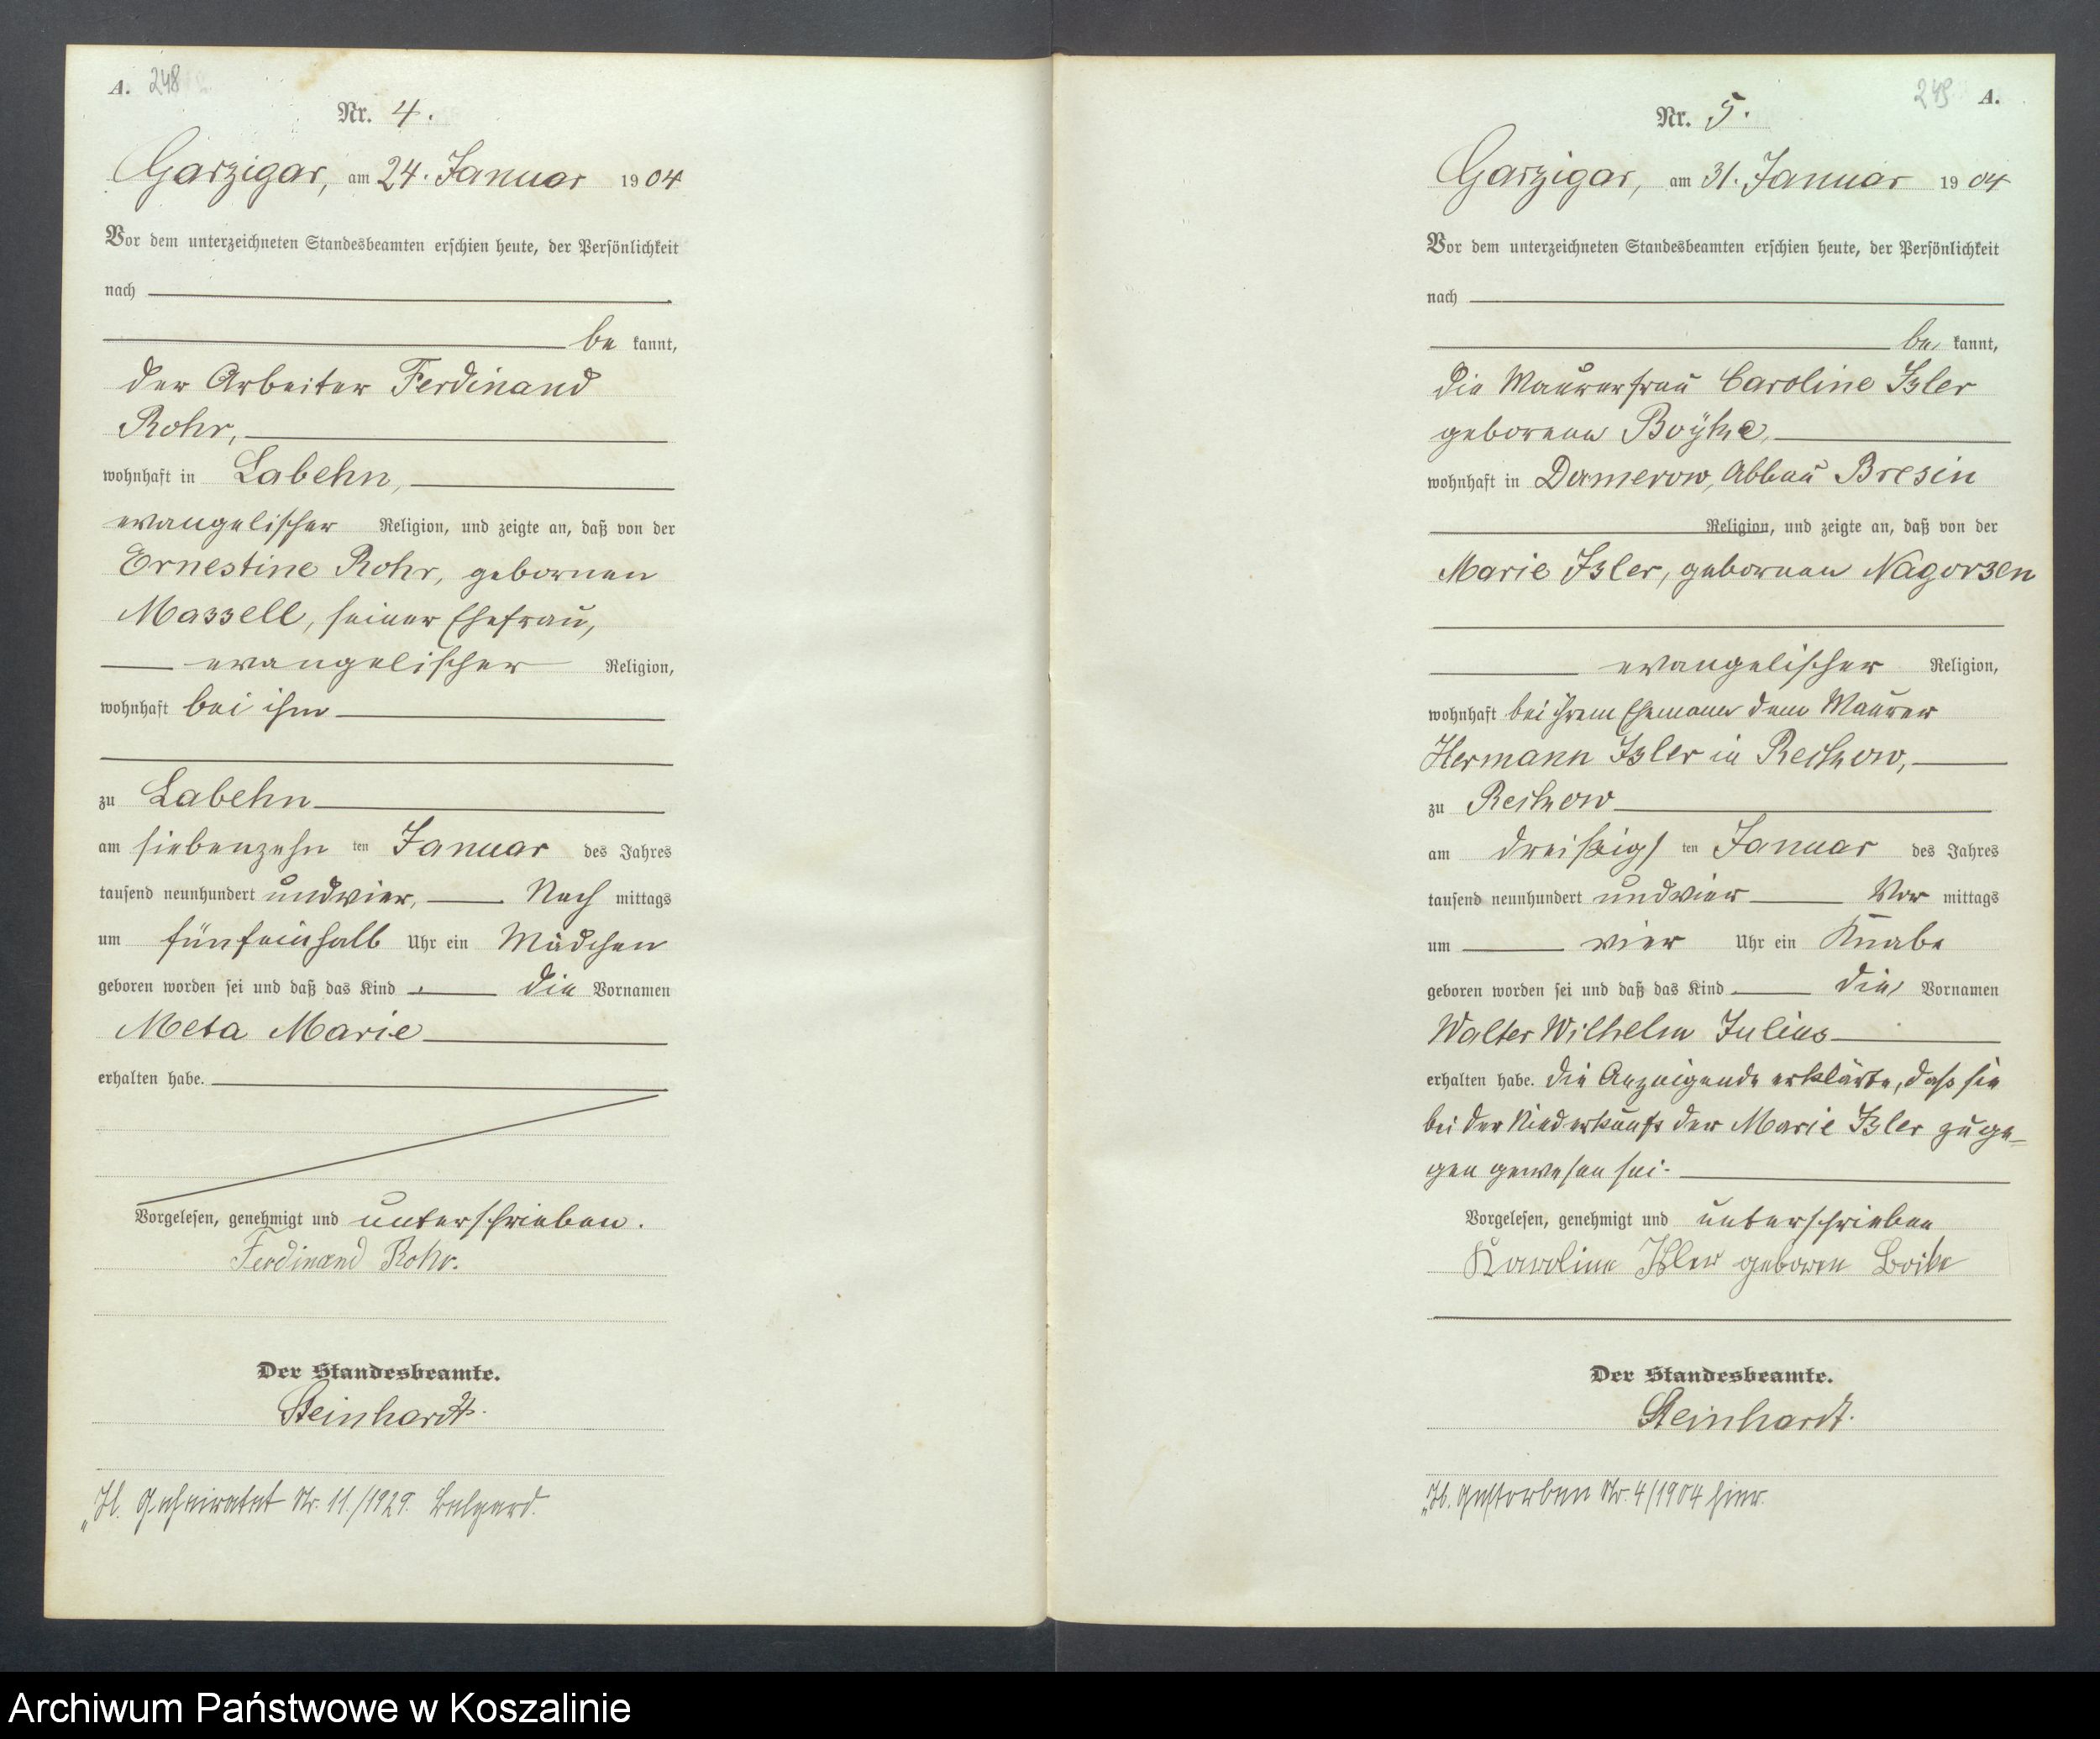 A. 248
Nr. 4.
Garzigar, am 24. Januar 1904
Vor dem unterzeichneten Standesbeamten erschien heute, der Persönlichkeit
nach
be kannt,
der Arbeiter Ferdinand
Rohr,
wohnhaft in Labehn,
evangelischer Religion, und zeigte an, daß von der
Ernestine Rohr, gebornen
Massell, seiner Ehefrau,
evangelischer Religion,
wohnhaft bei ihm
zu Labehn
am siebenzehn ten Januar des Jahres
tausend neunhundert undvier, Nach mittags
um fünfeinhalb Uhr ein Mädchen
geboren worden sei und daß das Kind die Vornamen
Meta Marie
erhalten habe.
Vorgelesen, genehmigt und unterschrieben.
Ferdinand Rohr.
Der Standesbeamte.
Steinhardt.
Geheiratet Nr. 11./1929. Belgard.
249 A.
Nr. 5.
Garzigar, am 31. Januar 1904
Vor dem unterzeichneten Standesbeamten erschien heute, der Persönlichkeit
nach
be kannt,
die Maurerfrau Caroline Isler
geborene Boyke,
wohnhaft in Damerow, Abbau Bresin
Religion, und zeigte an, daß von der
Marie Isler, gebornen Nagorsen
evangelischer Religion,
wohnhaft bei ihrem Ehemann dem Maurer
Hermann Isler in Reckow,
zu Reckow
am dreißigs ten Januar des Jahres
tausend neunhundert undvier Vor mittags
um vier Uhr ein Knabe
geboren worden sei und daß das Kind die Vornamen
Walter Wilhelm Julius
erhalten habe. Die Anzeigende erklärte, daß sie
bei der Niederkunft der Marie Isler zuge-
gen gewesen sei.
Vorgelesen, genehmigt und unterschrieben
Karoline Isler geboren Boike
Der Standesbeamte.
Steinhardt.
Gestorben Nr. 4/1904 hier.
Archiwum Państwowe w Koszalinie